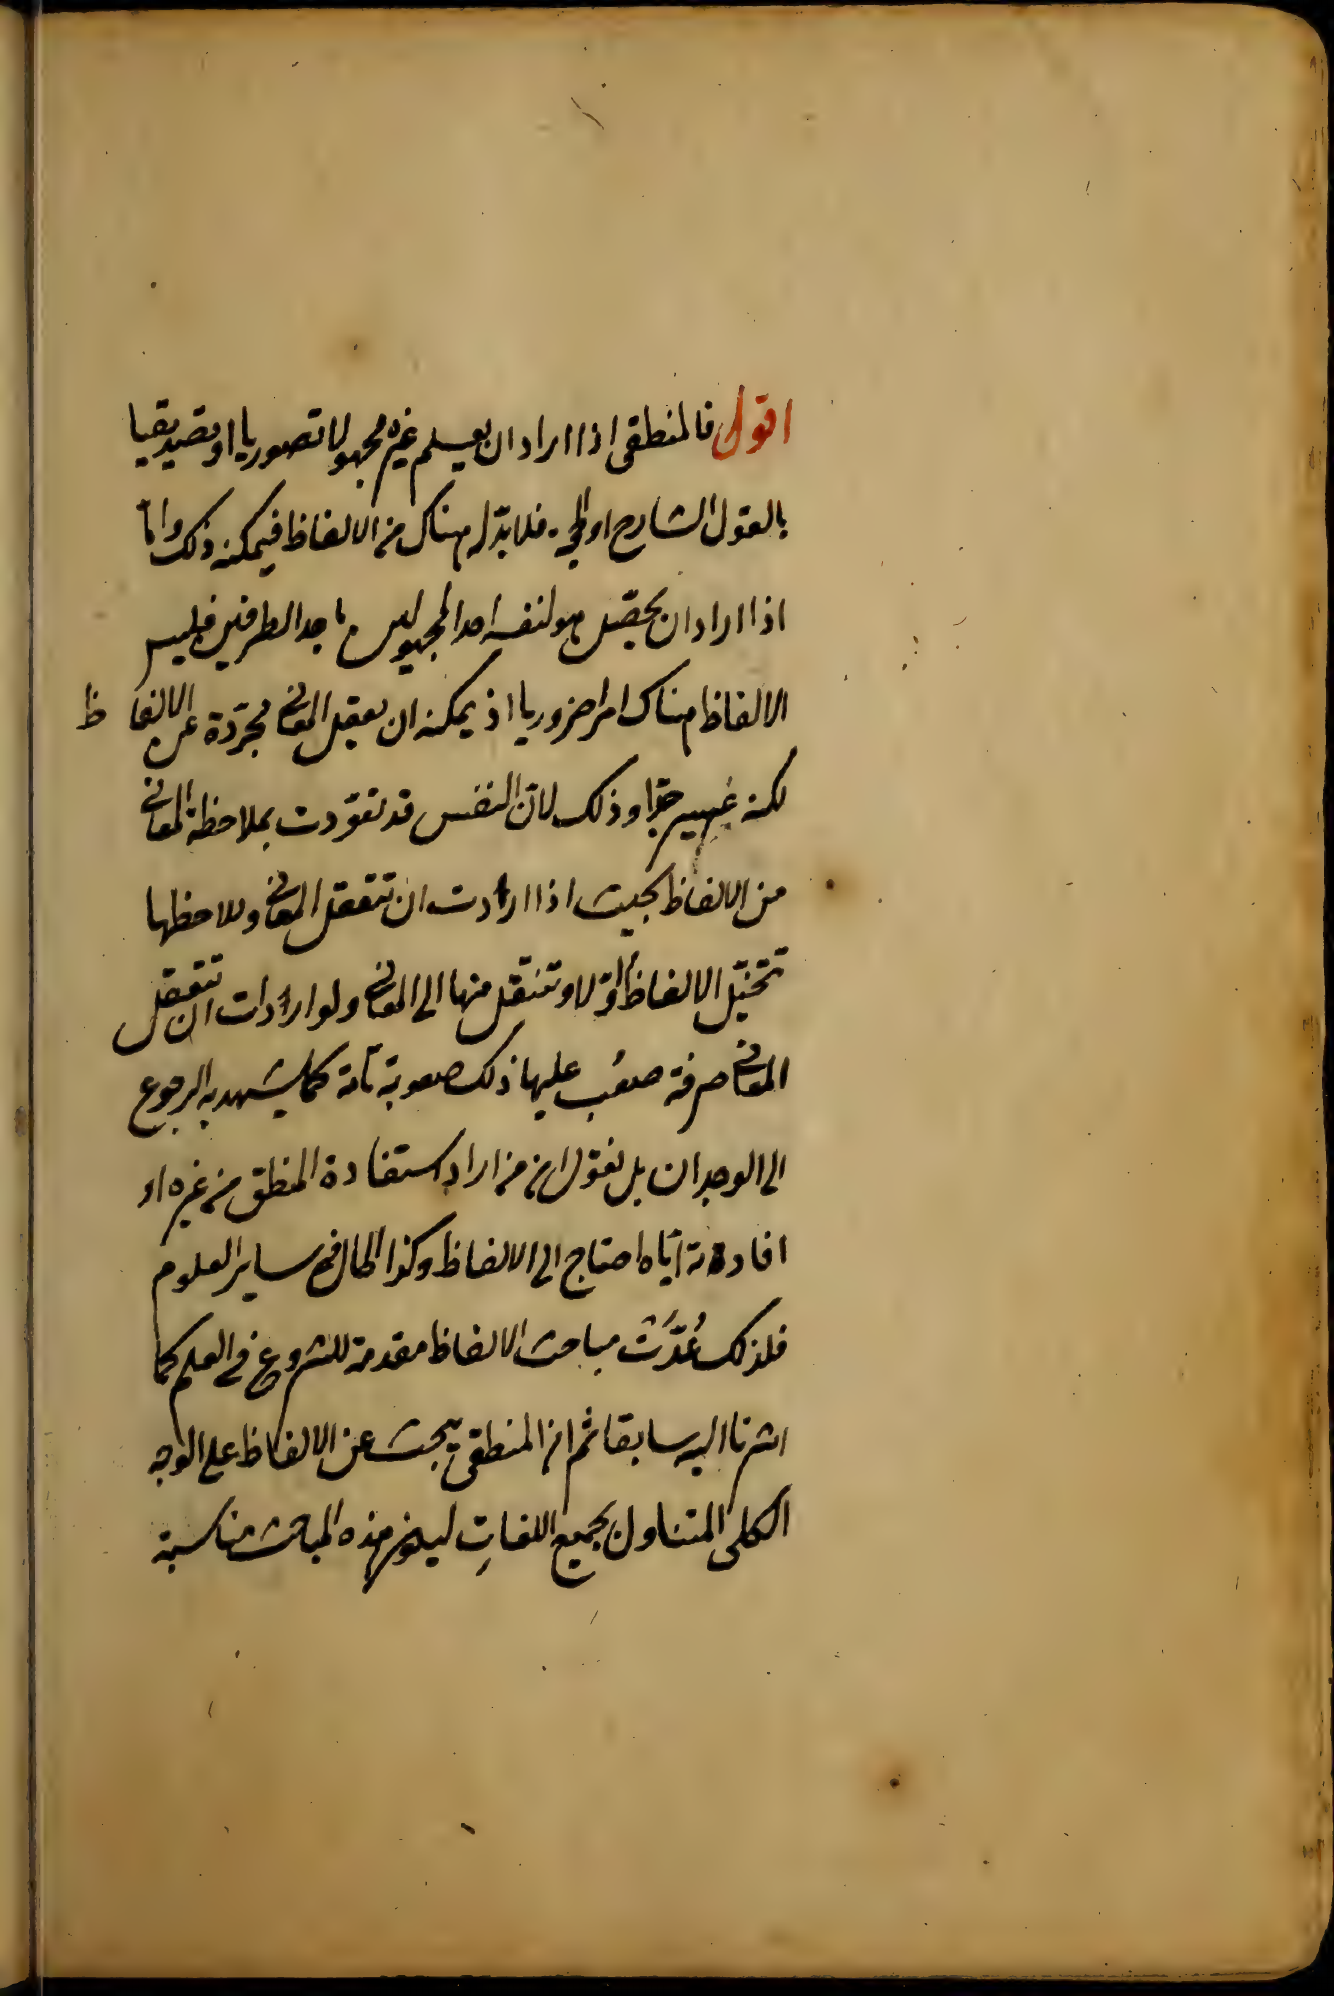 اقول فالمنطقى اذا اراد ان يعلم غيره مجهولا تصوريا او تصديقيا
بالقول الشارح او الحجة فلا بدّ له هناك من الالفاظ فيمكنه ذلك وامّا
اذا اراد ان يحصّل هو لنفسه احد المجهولين باحد الطرفين فليس
الالفاظ هناك امرا ضروريا اذ يمكنه ان يعقل المعانى مجرّدة عن الالفاظ
لكنه عسير جدّا وذلك لانّ النفس قد تعوّدت بملاحظة المعانى
من الالفاظ بحيث اذا ارادت ان تتعقل المعانى وتلاحظها
تتخيّل الالفاظ اوّلا وتنتقل منها الى المعانى ولو ارادات ان تتعقل
المعانى صرفة صعُب عليها ذلك صعوبة تامّة كما يشهد به الرجوع
الى الوجدان بل نقول ان من اراد استفادة المنطق من غيره او
افادته ايّاه احتاج الى الالفاظ وكذا الحال فى ساير العلوم
فلذلك عُدَّت مباحث الالفاظ مقدمة للشروع فى العلم كما
اشرنا اليه سابقا ثم ان المنطقى يبحث عن الالفاظ على الوجه
الكلى المتناول لجميع اللغاتِ ليكون هذه المباحث مناسبة